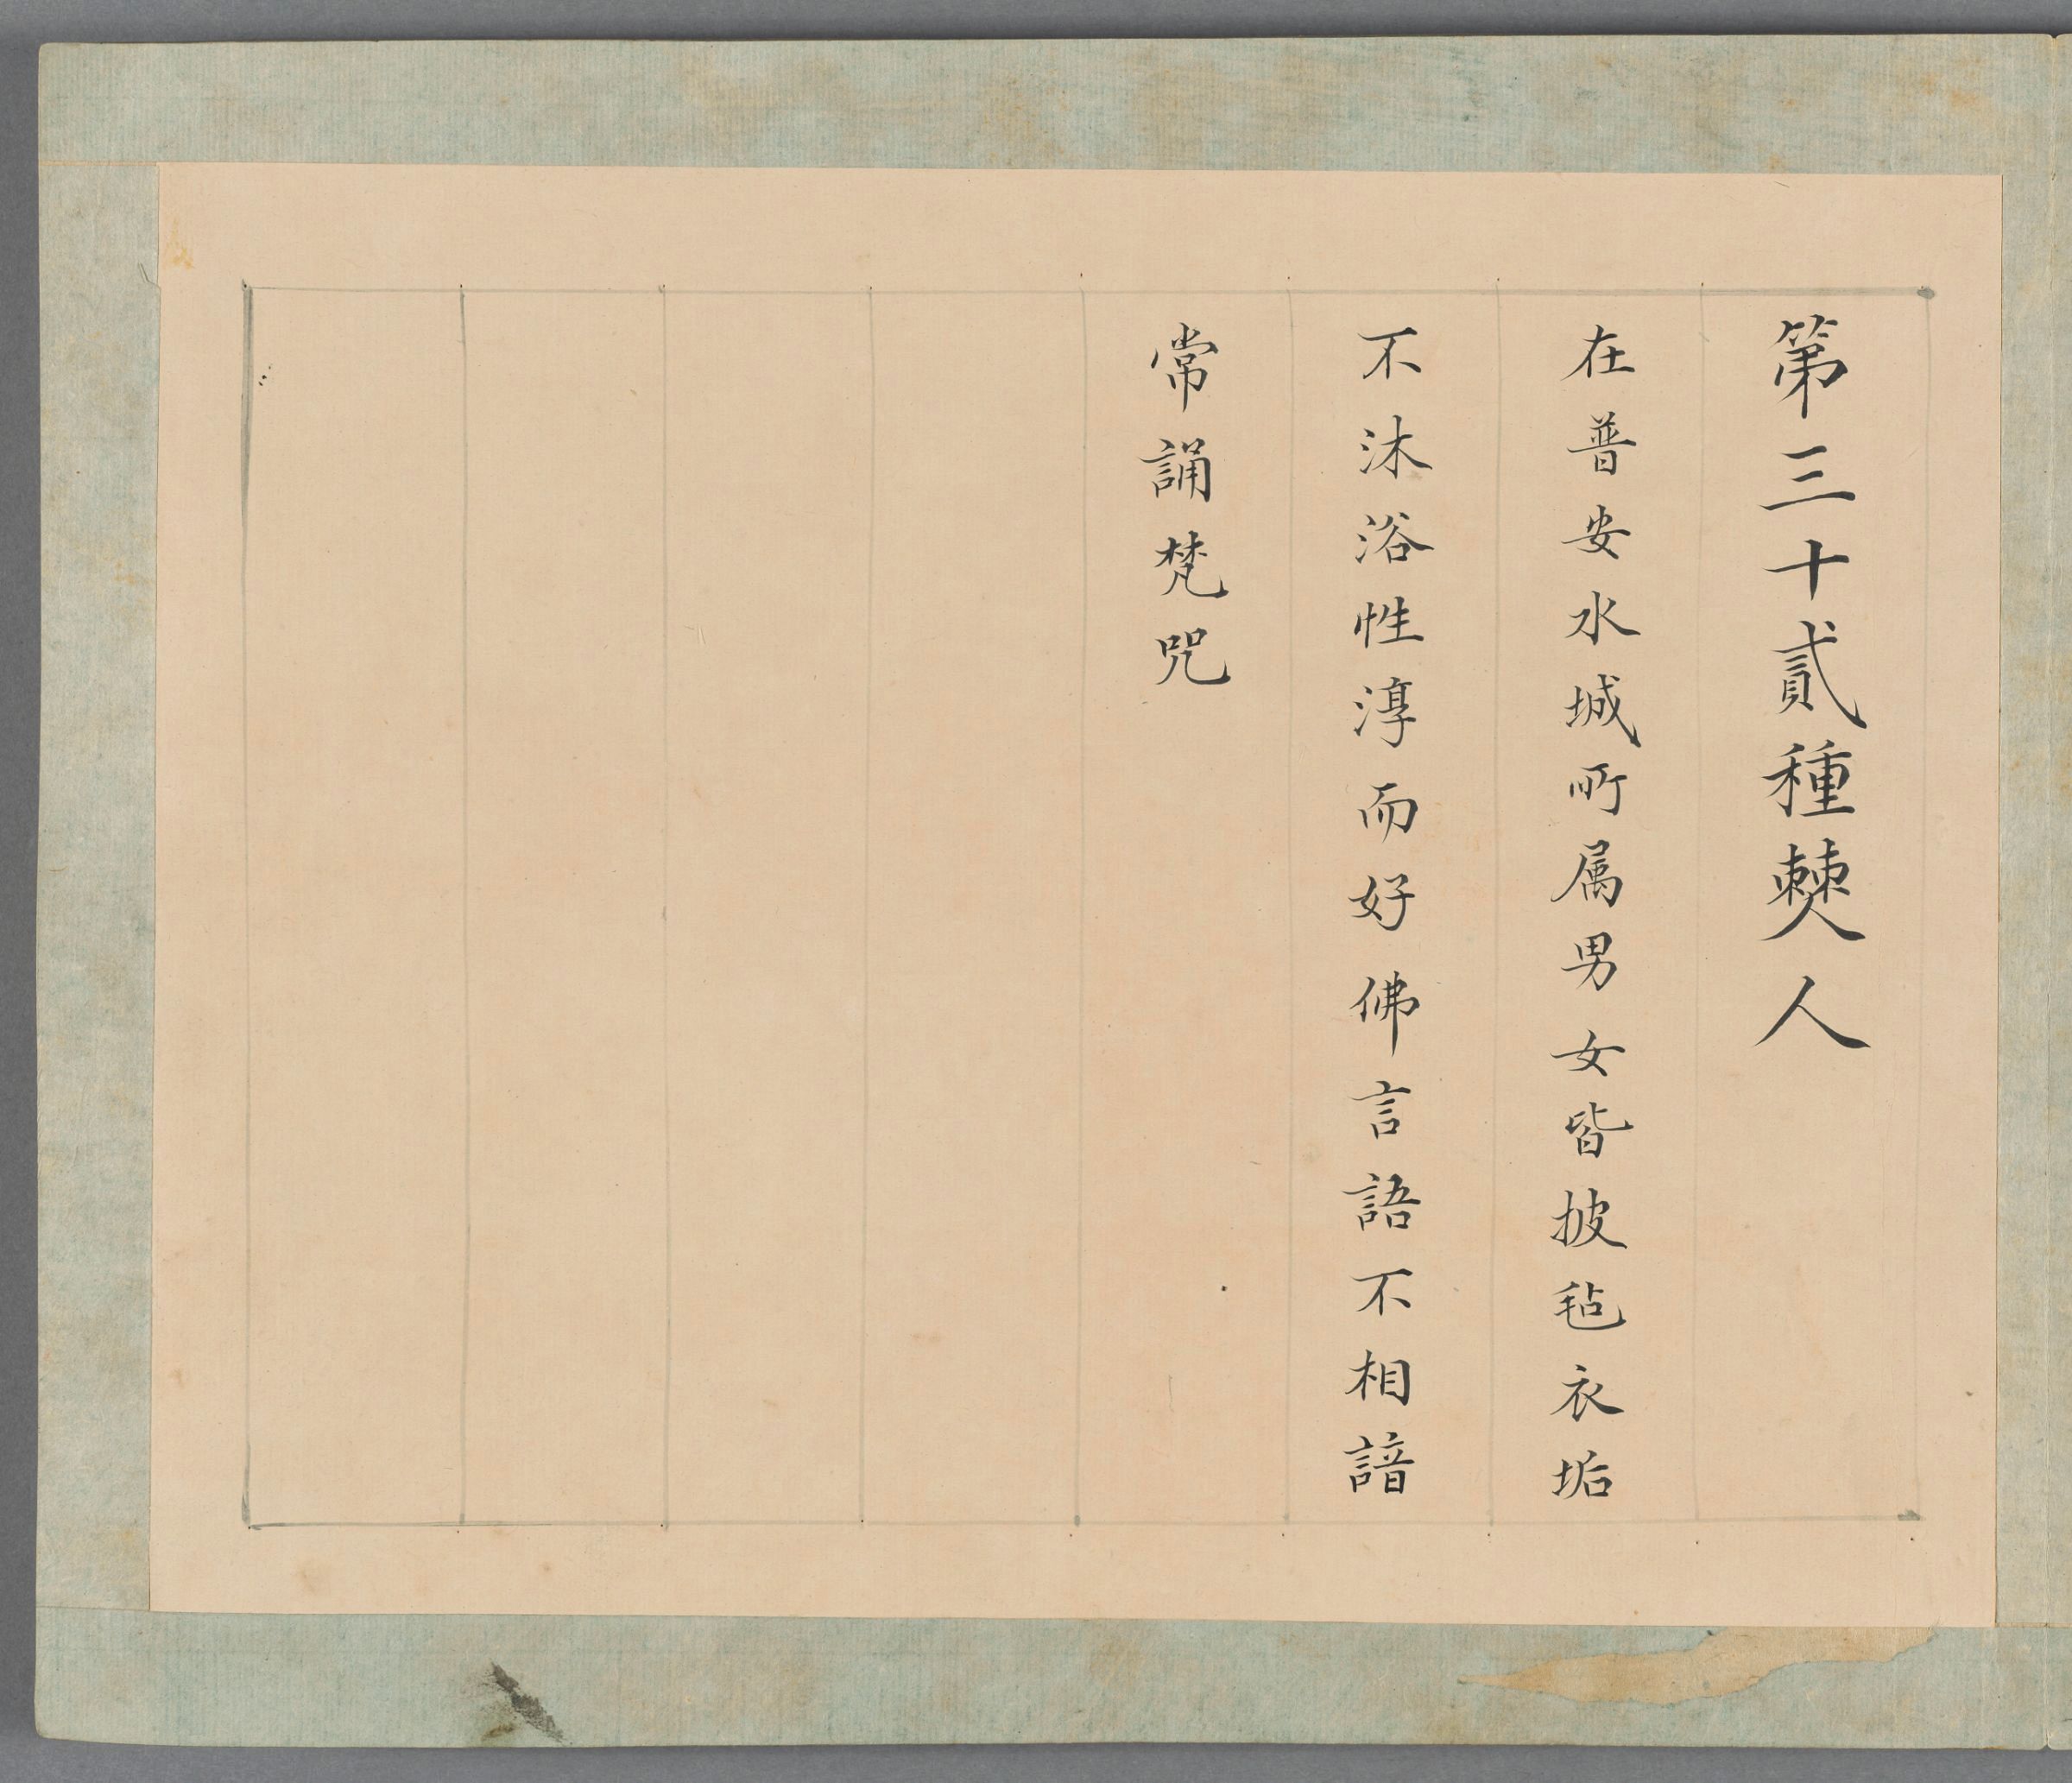 第三十貳種僰人
在普安水城所属男女皆披毡衣垢
不沐浴性淳而好佛言語不相諳
常誦梵咒